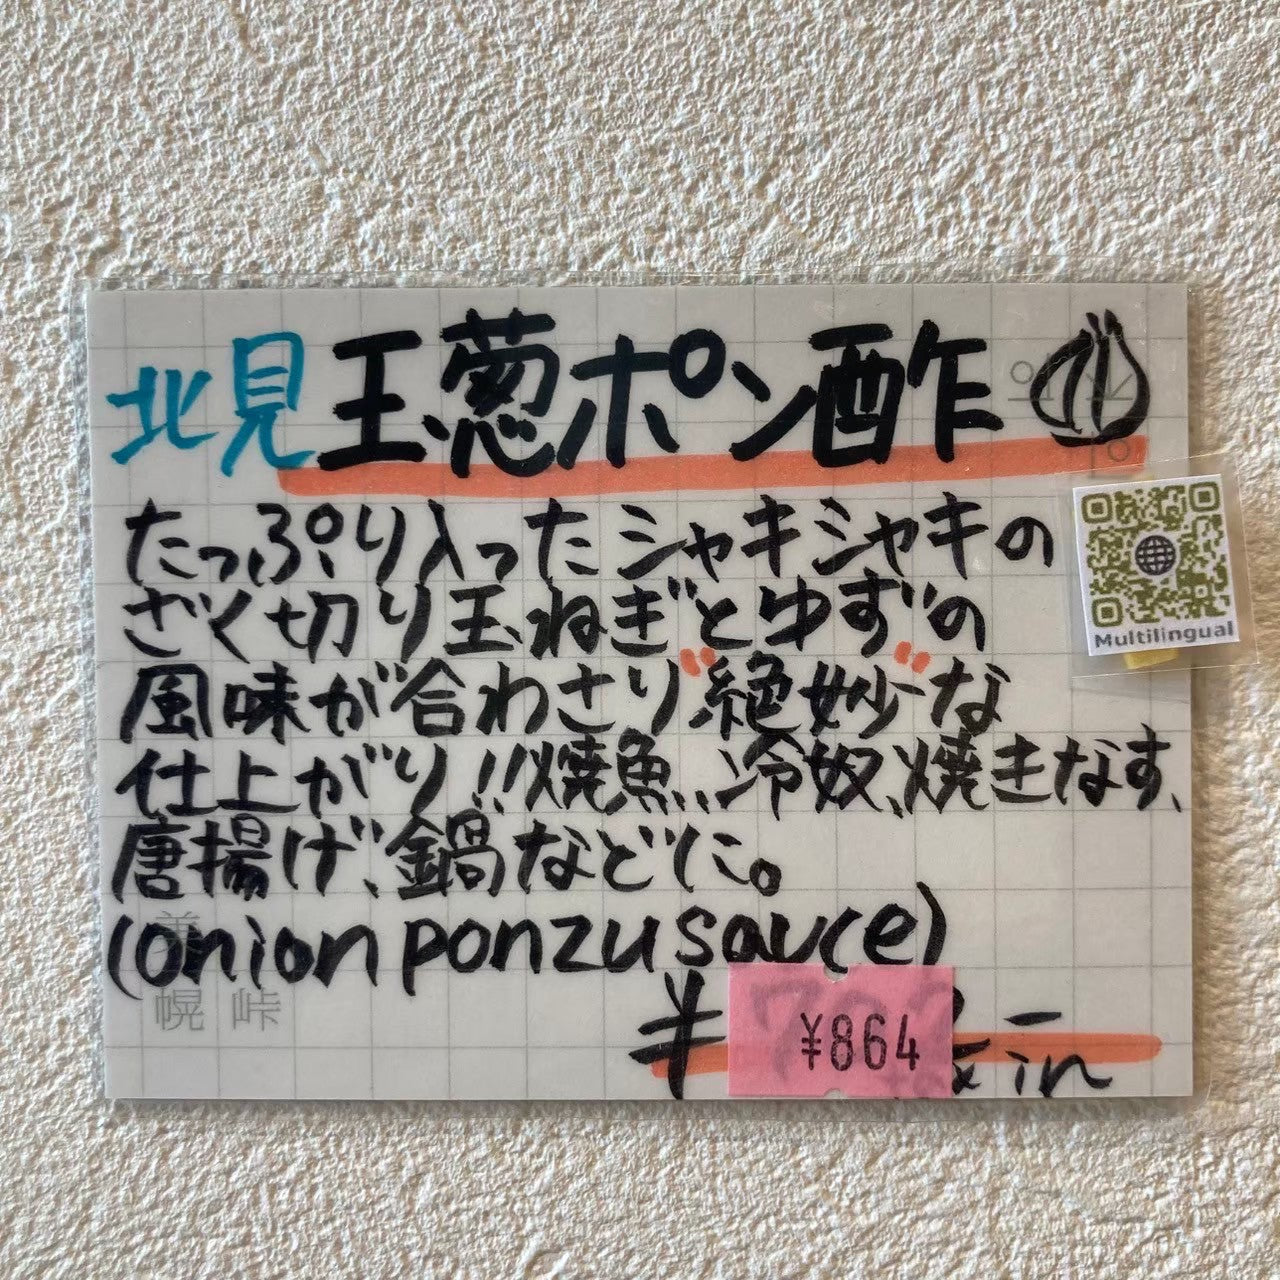 北見玉葱ポン酢
たっぷり入ったシャキシャキの
ざく切り玉ねぎとゆずの
風味が合わさり"絶妙"な
仕上がり!!焼魚、冷奴、焼きなす、
唐揚げ、鍋などに。
(onion ponzu sauce)
¥864
tax in
Multilingual
美
幌 峠